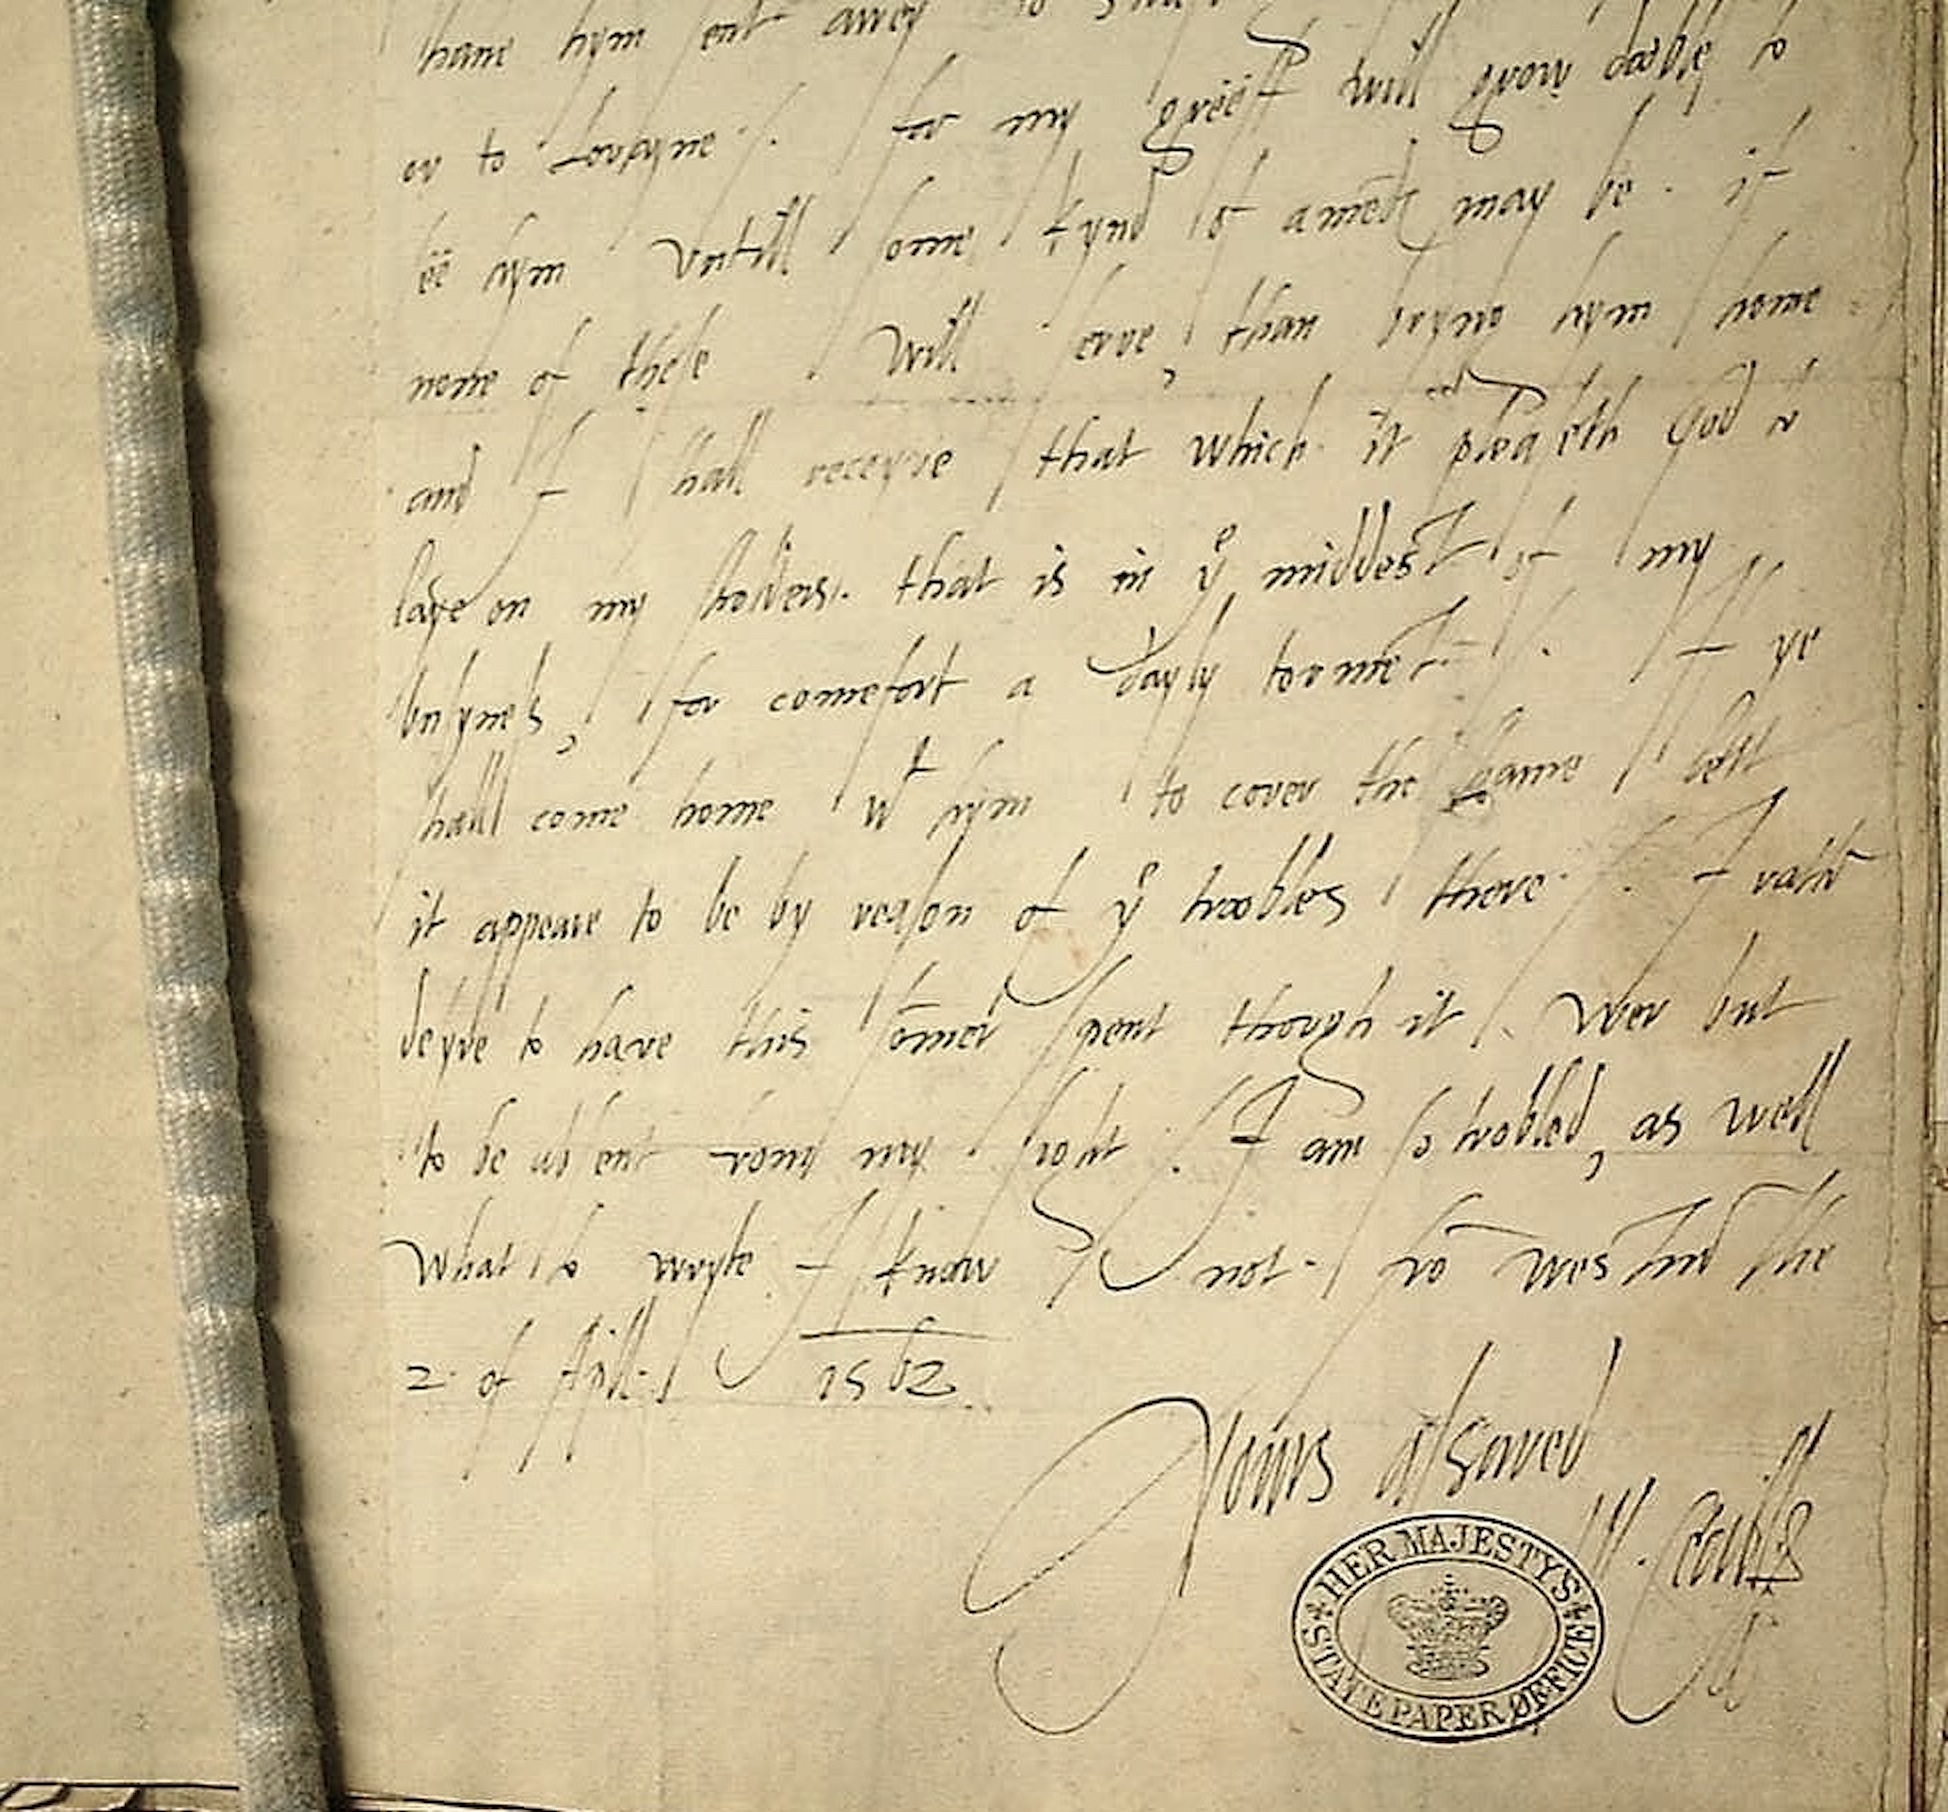 have hym sent awey to
or to Lovayne. for my greeff will grow dooble to
see hym untill some kynd of amēds may be. if
none of these will serve, than bryng hym home
and I shall receyve that which it pleaseth God to
laye on my sholders. that is in yͤ middest of my
busynes, for comefort a dayly tormēt. If ye
shall come home wᵗ hym to cover the shame lett
it appeare to be by reason of yͤ troobles there. I rathʳ
desyre to have this sōmer spent though it wer but
to be absent from my sight. I am so trobled, as well
what to wryte I know not. frō westmʳ the
2 of April 1562
Yours assured
W. Cecill
HER MAJESTYS
STATE PAPER OFFICE